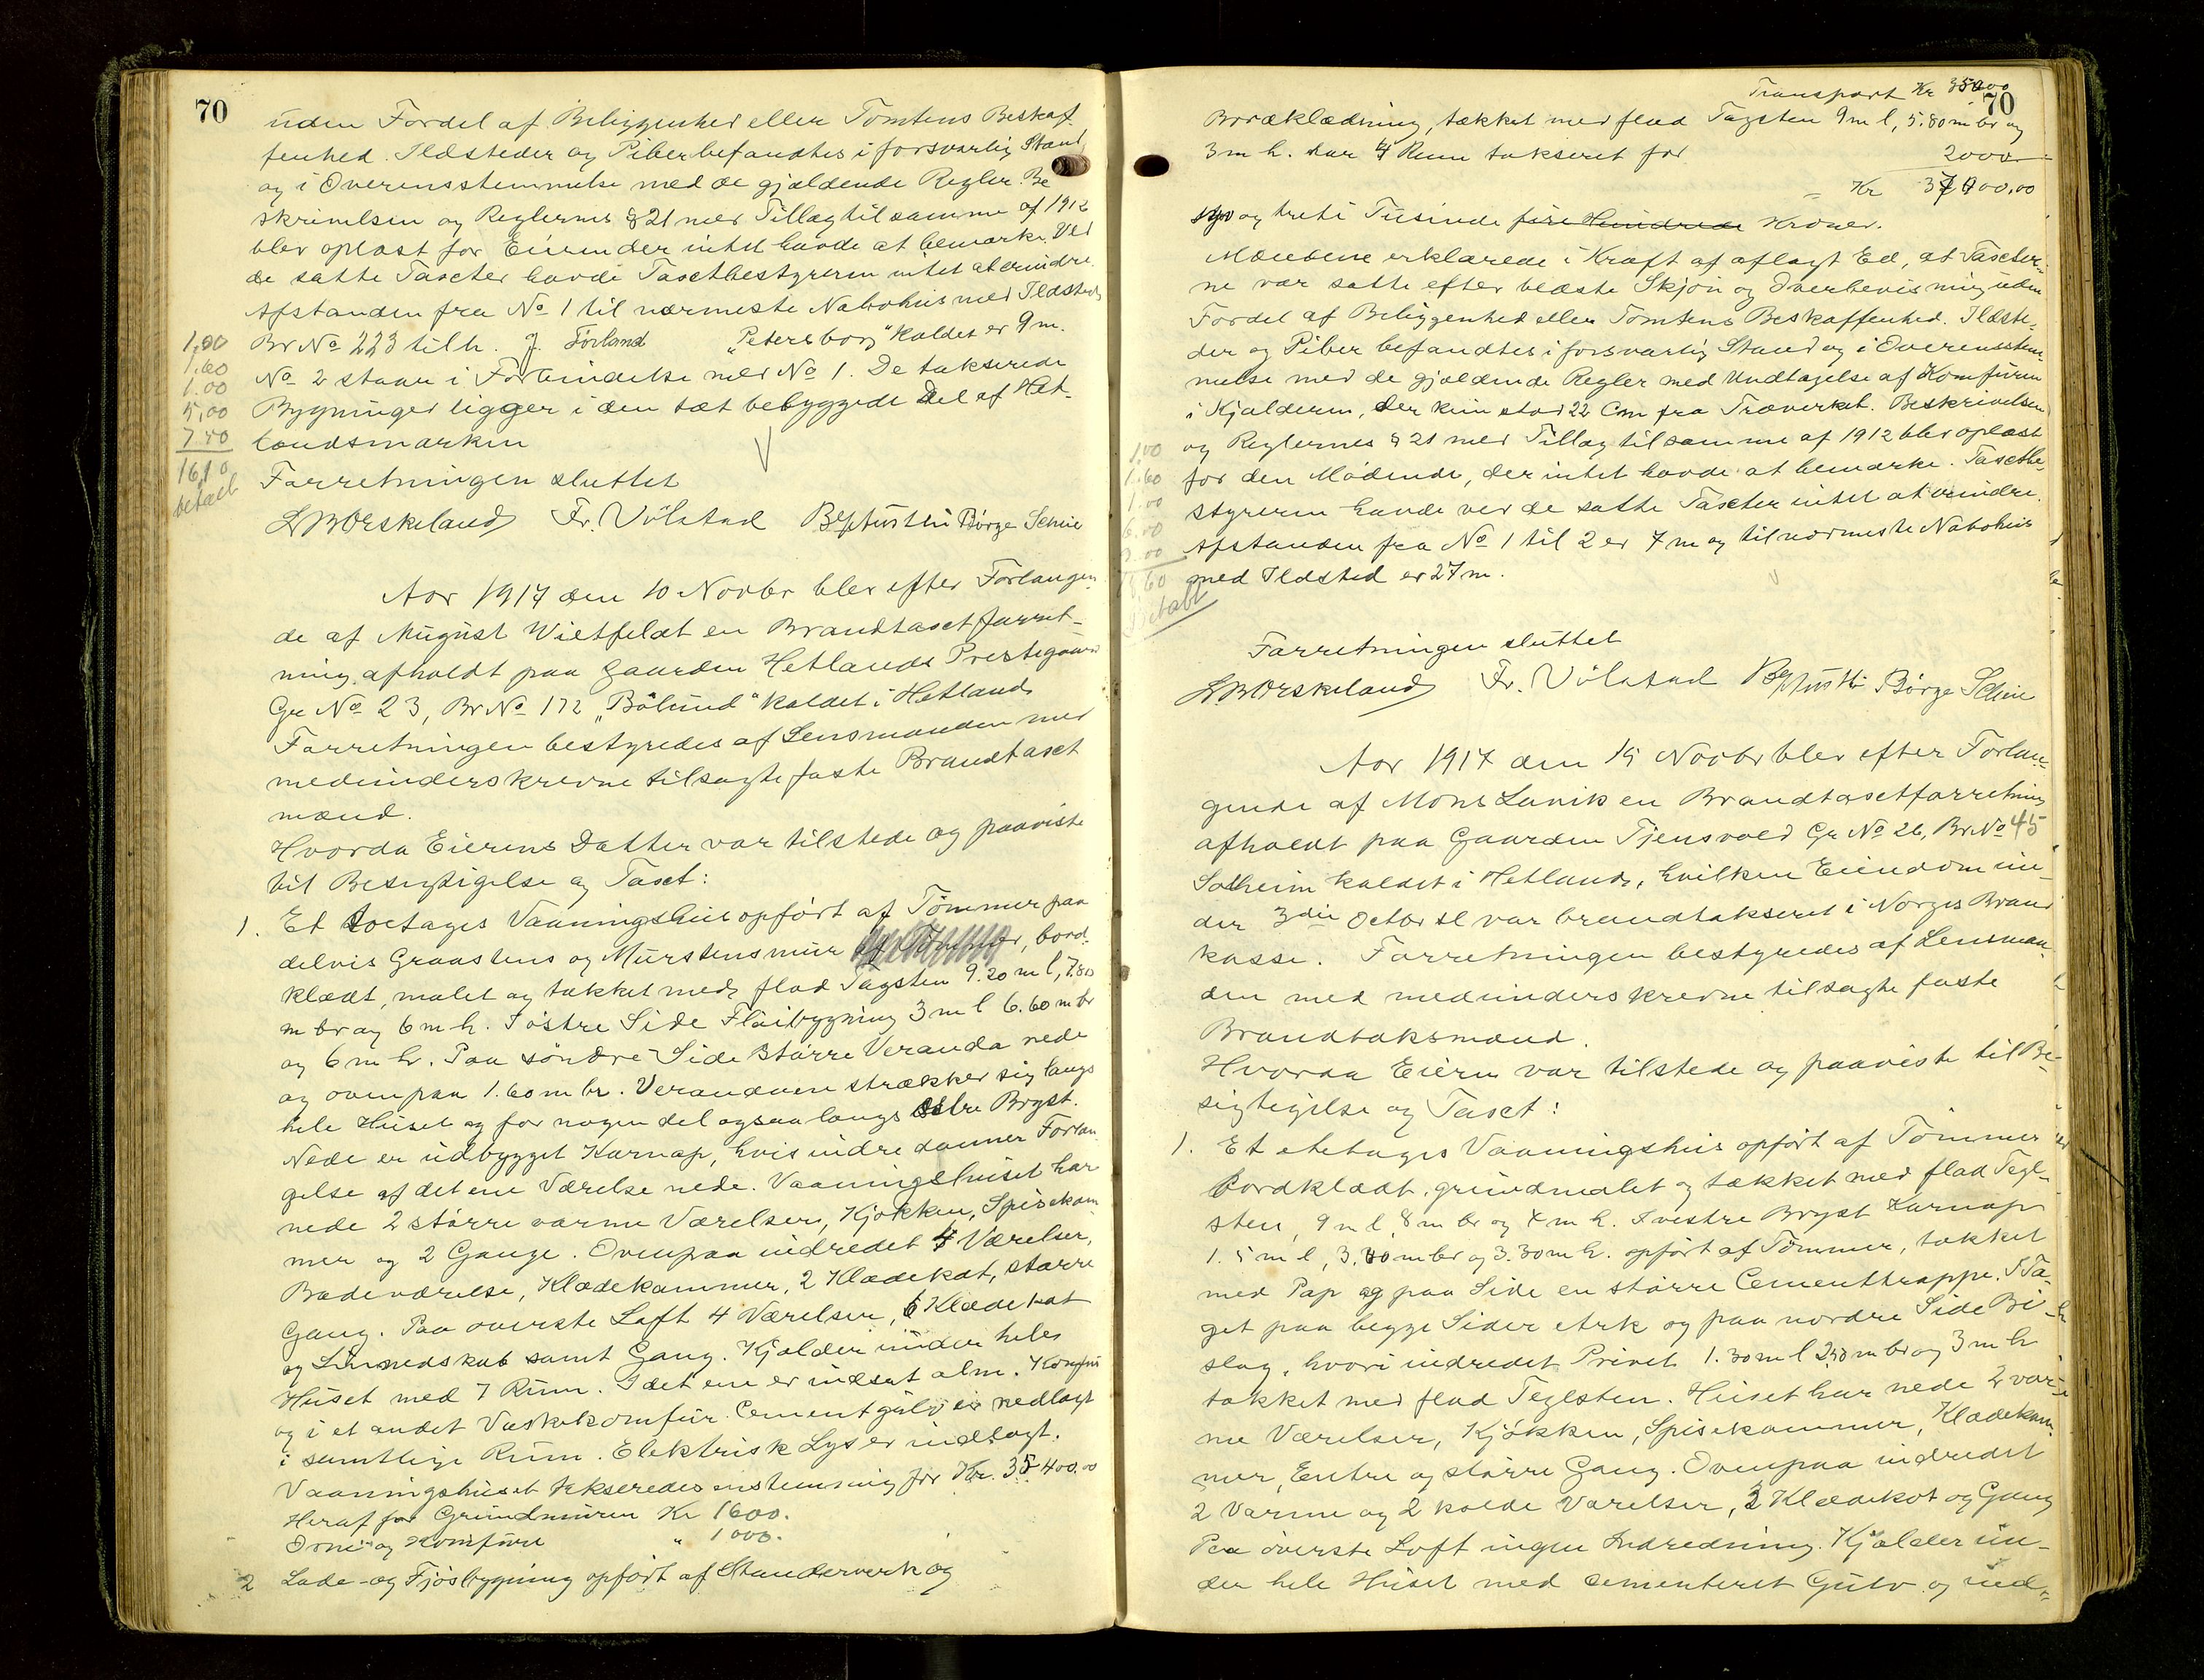 70
uden Fordel af Beliggenhed eller Tomtens Beskaf-
fenhed. Ildsteder og Piber befandtes i forsvarlig Stand
og i Overensstemmelse med de gjældende Regler. Be
skrivelsen og Reglernes § 21 med Tillæg til samme af 1912
blev oplæst for Eieren der intet havde at bemærke. Ved
de satte Taxter havde Taxtbestyreren intet at erindre.
Afstanden fra No 1 til nærmeste Nabohus med Ildsted
1,00 Br No 223 tilh. J. Törland "Petersborg" kaldet er 9 m.
1.60 No 2 staar i Forbindelse med No 1. De takserede
1.00
5,00 Bygninger ligger i den tæt bebyggede Del af Het-
7.50 landsmarken
16,10 Forretningen sluttet
betalt
L. W. Orskeland Fr. Völstad Børge Scheie
Aar 1917 den 10 Novbr blev efter Forlangen-
de af August Wietfeldt en Brandtaxtforret-
ning afholdt paa Gaarden Hetlands Prestegaard
Gr No 23, Br No 172 "Bölund" kaldet i Hetland
Forretningen bestyredes af Lensmanden med
medunderskrevne tilsagte faste Brandtaxt
mænd.
Hvorda Eierens Datter var tilstede og paaviste
til Besigtigelse og Taxt:
1. Et toetages Vaaningshus opført af Tømmer paa
delvis Graastens og Murstensmur , bord-
klædt, malet og tækket med flad Tagsten 9.20 m l, 7.80
m br og 6 m h. I östre Side Flöibygning 3 m l 6.60 m br
og 6 m h. Paa söndre Side större Veranda nede
og ovenpaa 1.60 m br. Verandaen strækker sig langs
hele Huset og for nogen del ogsaa langs östre Bryst.
Nede er udbygget Karnap, hvis indre danner Forlæn-
gelse af det ene Værelse nede. Vaaningshuset har
nede 2 større varme Værelser, Kjøkken, Spisekam
mer og 2 Gange. Ovenpaa indredet 4 Værelser,
Badeværelse, Klædekammer, 2 Klædekot, større
Gang. Paa øverste Loft 4 Værelser, 6 Klædekot
og Linnedskab samt Gang. Kjælder under hele
Huset med 7 Rum. I det ene er indsat alm. Komfur
og i et andet Vaskekomfur. Cementgulv er nedlagt
i samtlige Rum. Elektrisk Lys er indlagt.
Vaaningshuset takseredes enstemmig for Kr. 35400.00
Heraf for Grundmuren Kr 1600.
Ovne og Komfure " 1000.
2 Lade- og Fjösbygning opført af Standerverk og
Transport Kr 35000
70
Bordklædning, tækket med flad Tagsten 9 m l, 5.80 m br og
3 m h. har 4 Rum takseret for 2000
= Kr 37000,00
syv og treti Tusinde fire Hundrede Kroner.
Mændene erklærede i Kraft af aflagt Ed, at Taxter-
ne var satte efter bedste Skjøn og Overbevisning uden
Fordel af Beliggenhed eller Tomtens Beskaffenhed. Ildste-
der og Piber befandtes i forsvarlig Stand og i Overensstem-
melse med de gjældende Regler med Undtagelse af Komfuren
i Kjælderen, der kun stod 22 Cm fra Træverket. Beskrivelsen
1,00 og Reglernes § 21 med Tillæg til samme af 1912 blev oplæst
1.60 for den Mødende, der intet havde at bemærke. Taxtbe-
1.00 styreren havde ved de satte Taxter intet at erindre.
6.00 Afstanden fra No 1 til 2 er 7 m og til nærmeste Nabohus
med Ildsted er 27 m.
Betalt
Forretningen sluttet
L. W. Orskeland Fr. Völstad Børge Scheie
Aar 1917 den 15 Novbr blev efter Forlan-
gende af Mons Lunik en Brandtaxtforretning
afholdt paa Gaarden Tjensvold Gr No 26, Br No 45
Solheim kaldet i Hetland, hvilken Eiendom un-
der 3die Octbr sl var brandtakseret i Norges Brand
kasse. Forretningen bestyredes af Lensman-
den med medunderskrevne tilsagte faste
Brandtaksmænd.
Hvorda Eieren var tilstede og paaviste til Be-
sigtigelse og Taxt:
1. Et etetages Vaaningshus opført af Tømmer
bordklædt, grundmalet og tækket med flad Tegl-
sten, 9 m l 8 m br og 4 m h. I vestre Bryst Karnap
1.5 m l, 3.40 m br og 3.30 m h. opført af Tømmer, tækket
med Pap og paa Side en større Cementtrappe. I Ta-
get paa begge Sider Ark og paa nordre Side Bi-
slag, hvori indredet Privet 1.30 m l 2.50 m br og 3 m h
tækket med flad Teglsten. Huset har nede 2 var-
me Værelser, Kjökken, Spisekammer, Klædekam-
mer, Entre og større Gang. Ovenpaa indredet
2 Varme og 2 kolde Værelser, 2 Klædekot og Gang
Paa øverste Loft ingen Indredning. Kjælder un-
der hele Huset med cementeret Gulv og ind-